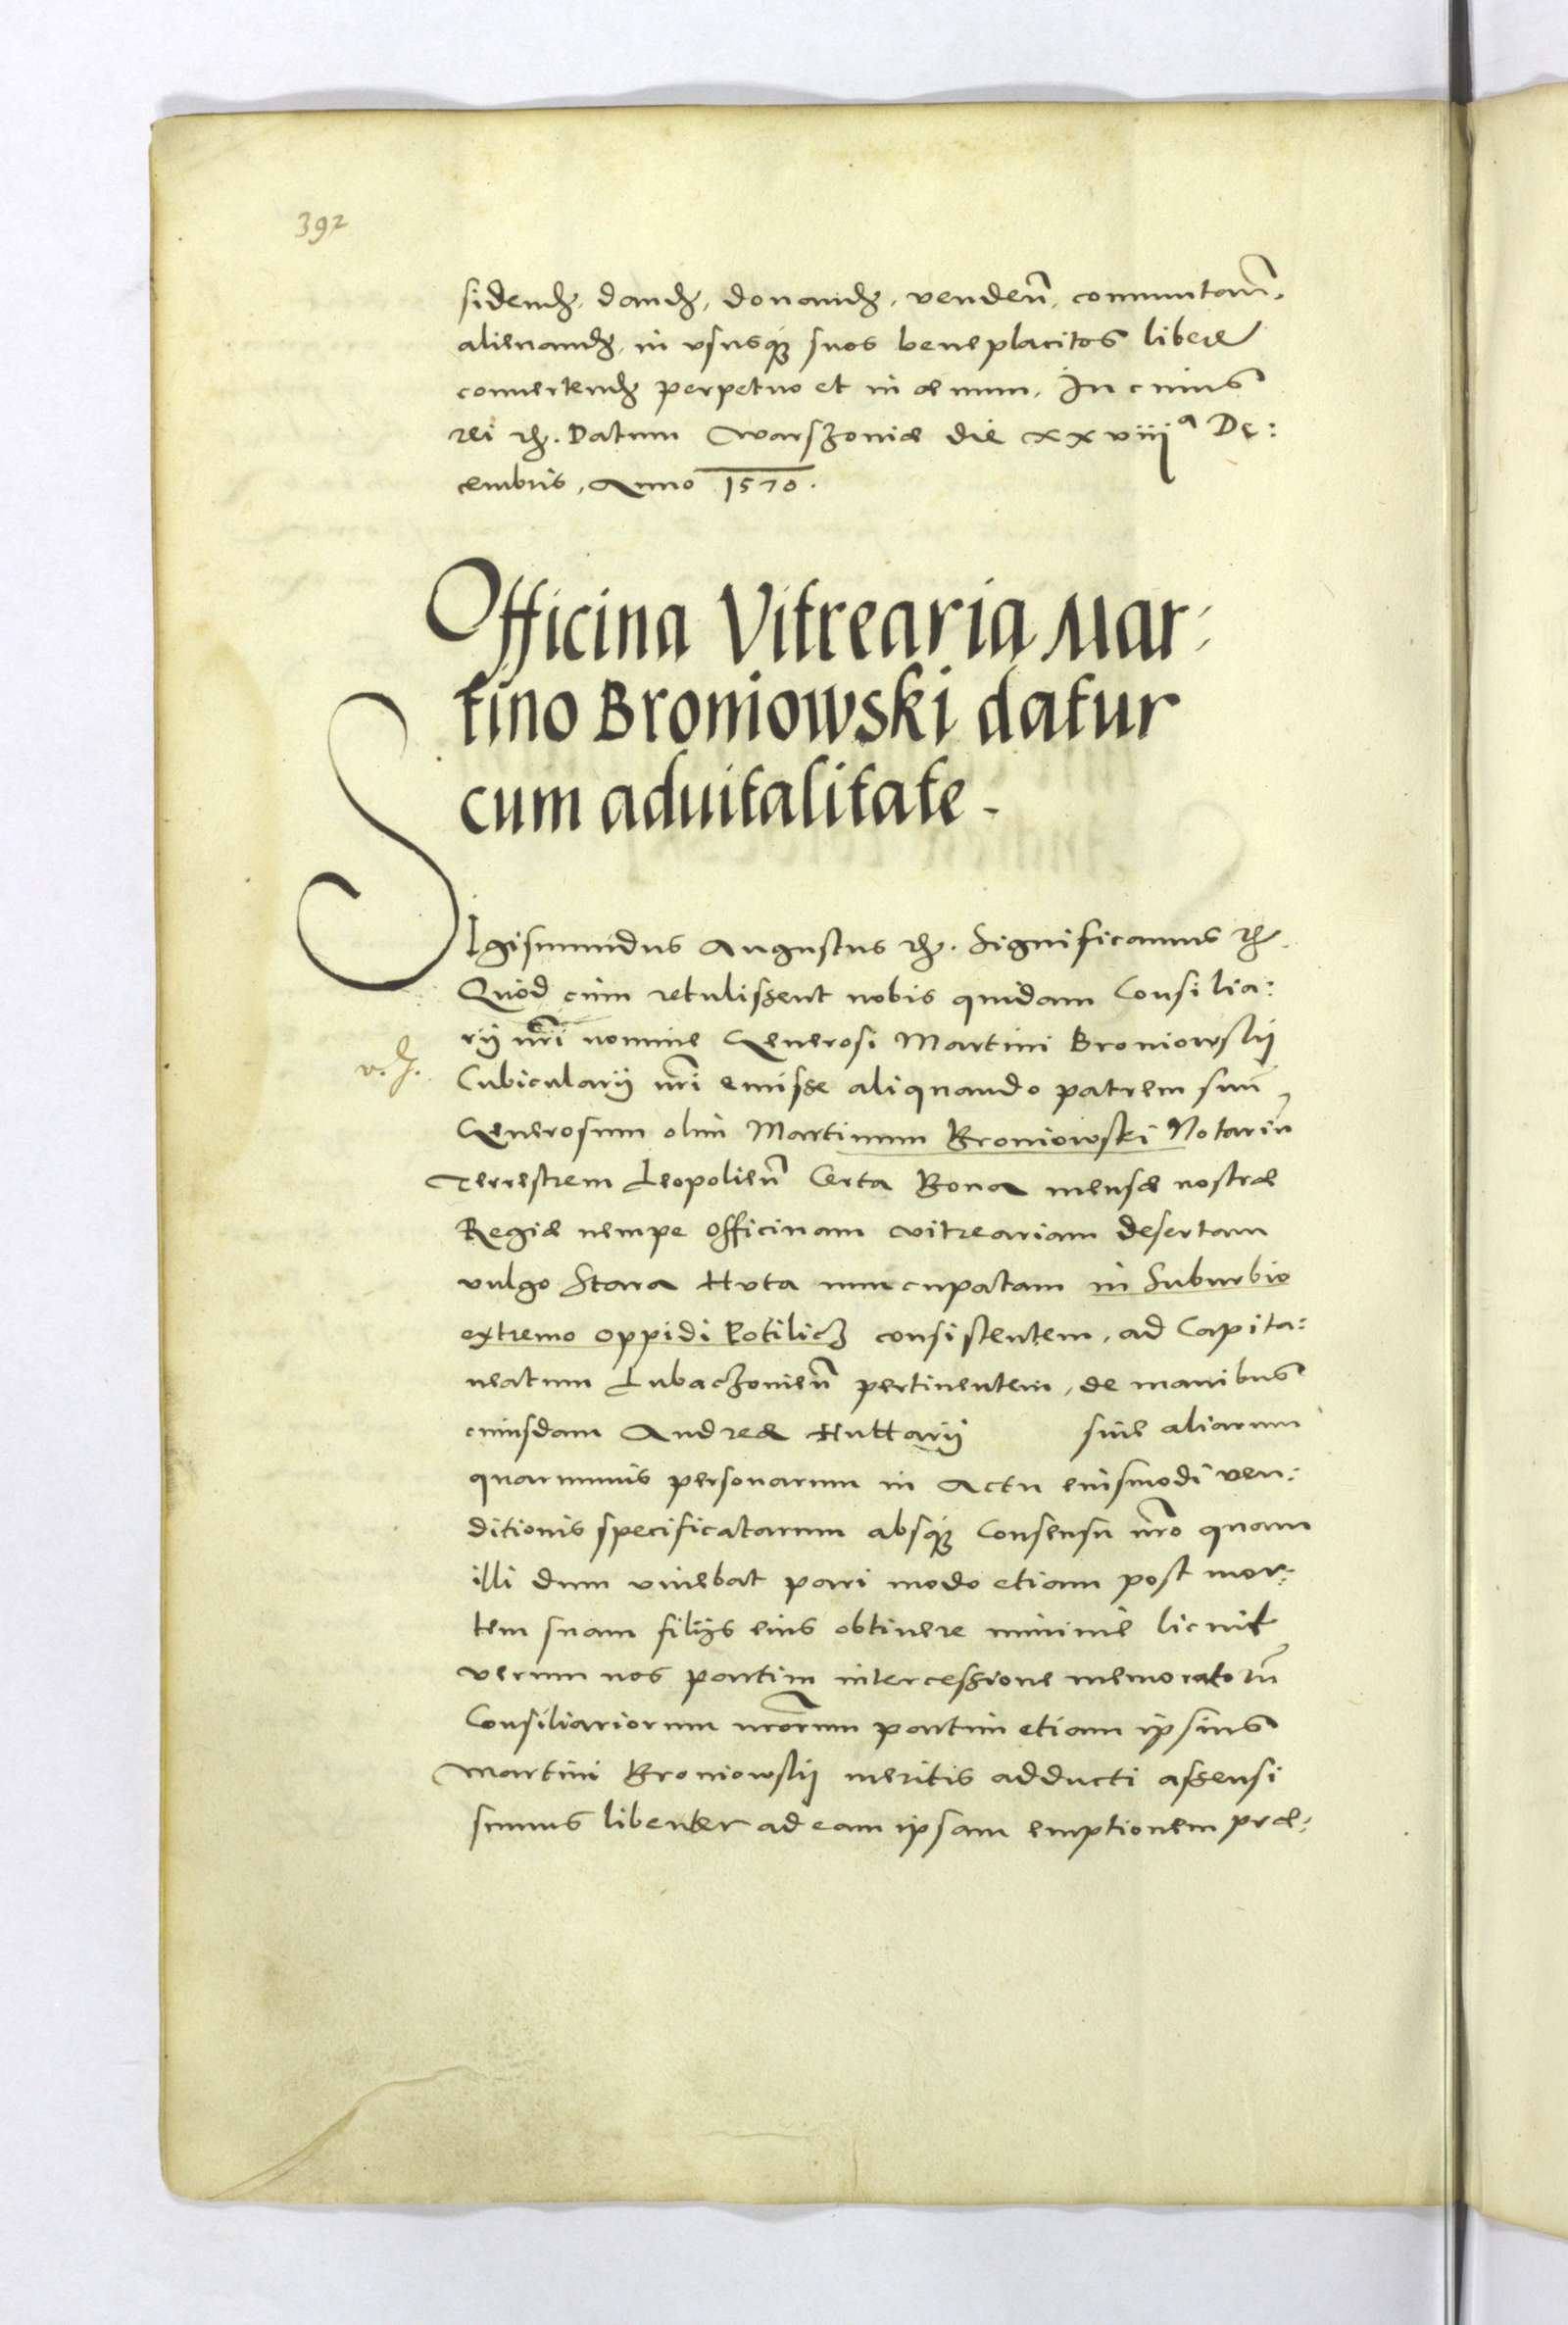 392
sidendȝ, dandȝ, donandȝ, venden̄, comutan̄,
alienandȝ, in vsusqȝ suos beneplacitos libere
conuertendȝ perpetuo et in æuum. In cuius
rei etc. Datum Warszouiæ die xxviijᵃ De:
cembris, Anno 1570.
Officina Vitrearia Mar-
tino Broniowski datur
cum aduitalitate.
SIgismundus Augustus etc. Significamus etc.
Quod cum retulissent nobis quidam Consilia:
rij nr̄i nomine Generosi Martini Broniowskij
Cubicularij nr̄i emisse aliquando patrem suū
Generosum olim Martinum Broniowski Notariū
Terrestrem Leopolien̄ Certa Bona mensæ nostræ
Regiæ nempe officinam vitreariam desertam
vulgo Stara Huta nuncupatam in Suburbio
extremo oppidi Potilicz consistentem, ad Capita:
neatum Lubaczouien̄ pertinentem, de manibus
cuiusdam Andreæ Huttarij siue aliarum
quarumuis personarum in Actu eiusmodi ven:
ditionis specificatarum absqȝ Consensu nr̄o quam
illi dum viuebat pari modo etiam post mor:
tem suam filijs eius obtinere minime licuit
verum nos partim intercessione memoratorū
Consiliariorum nr̄orum partim etiam ipsius
Martini Broniowskij meritis adducti assensi
sumus libenter ad eam ipsam emptionem præ: